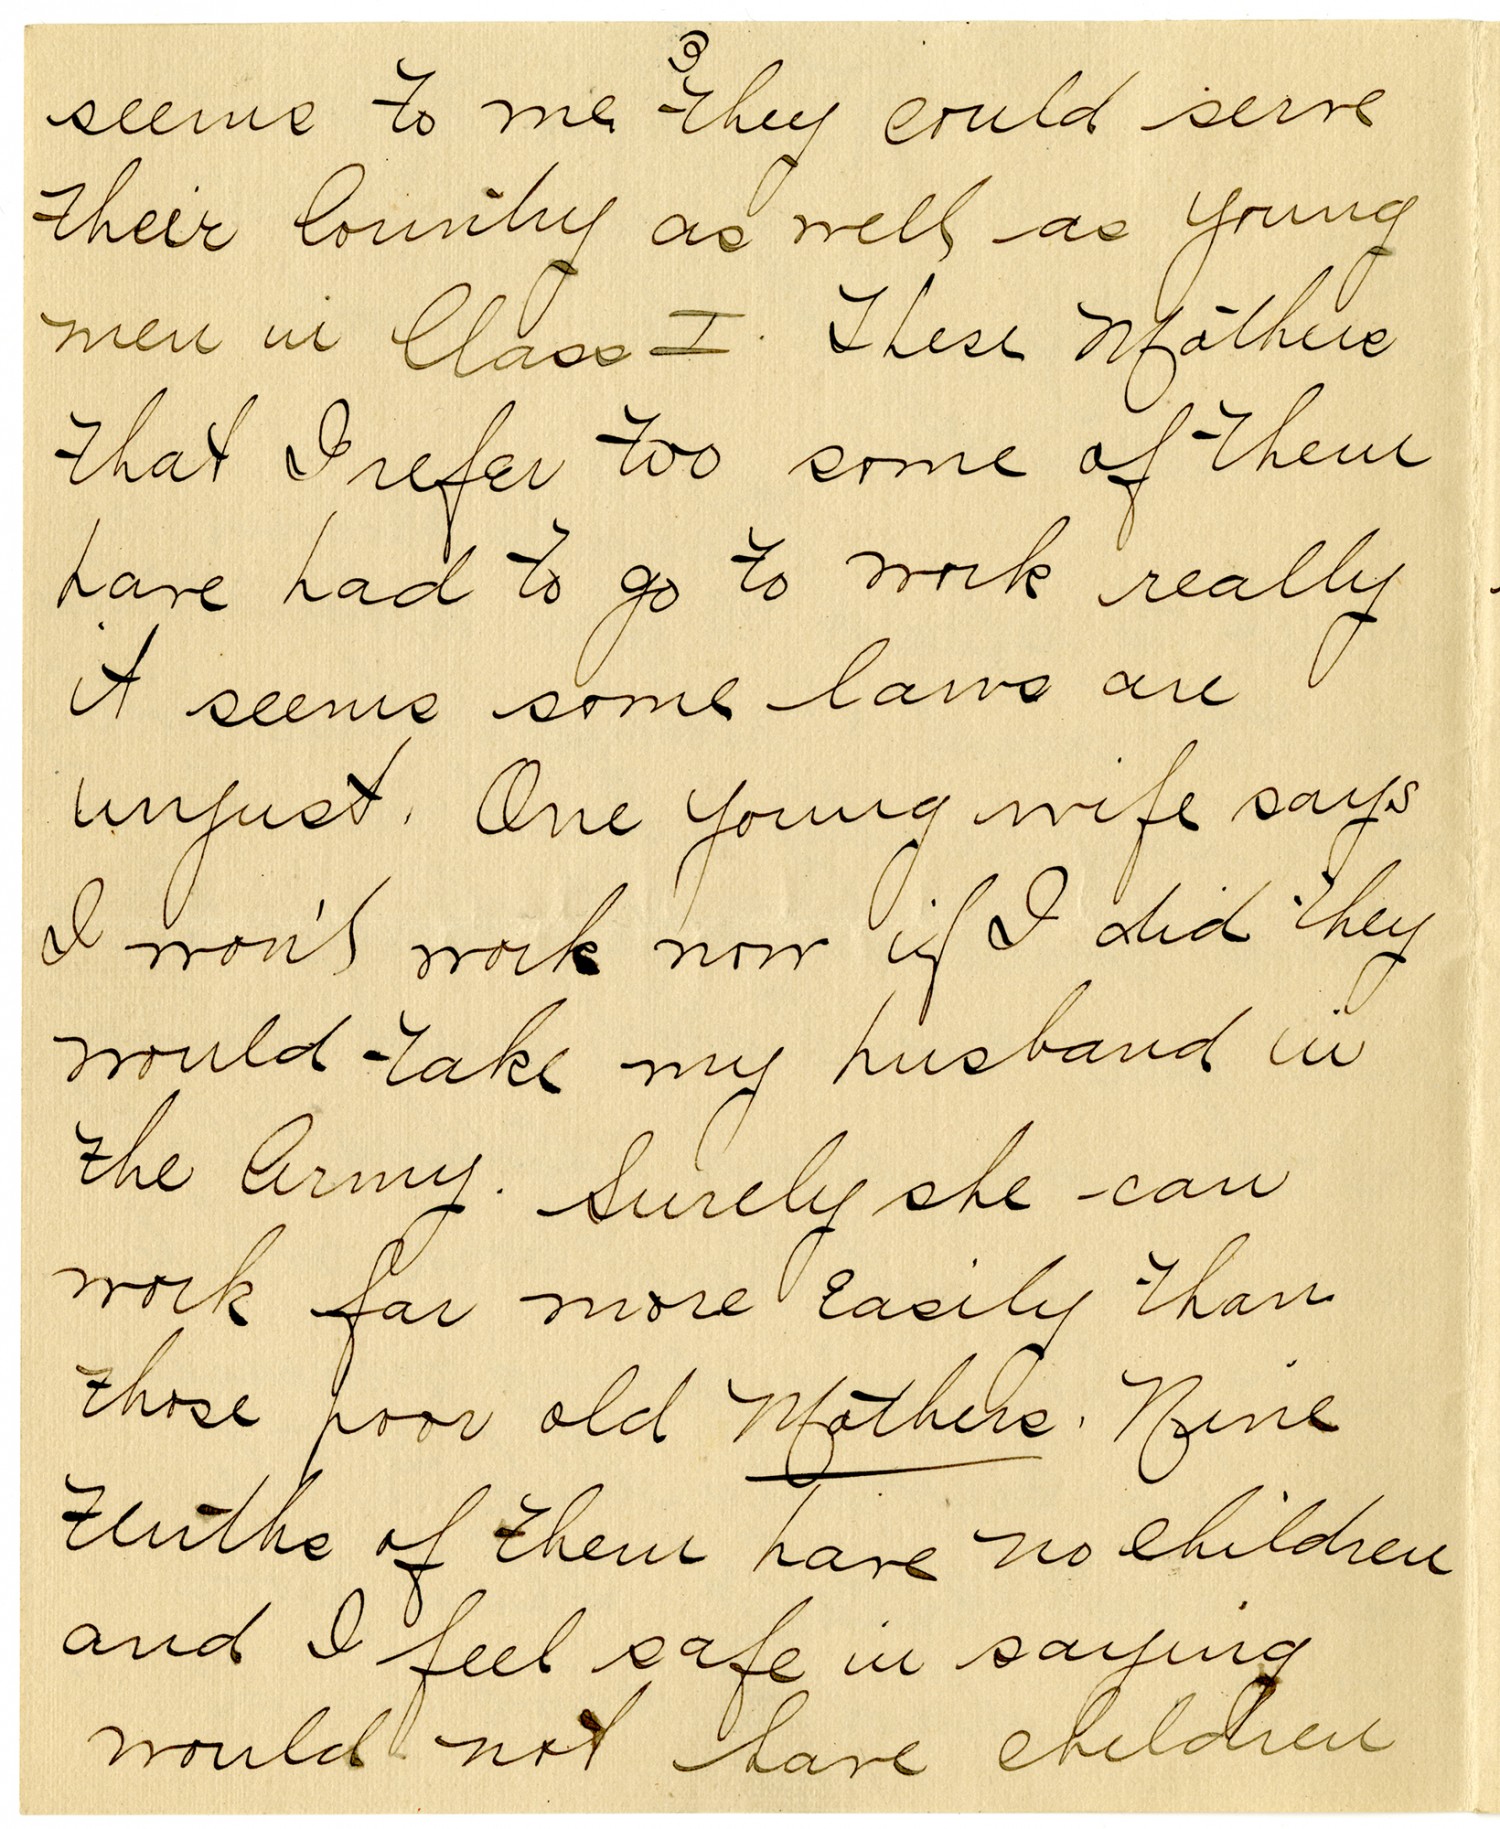 3
seems to me they could serve
their Country as well as young
men in Class I. These Mothers
that I refer too some of them
have had to go to work really
it seems some laws are
unjust. One young wife says
I won't work now if I did they
would take my husband in
the Army. Surely she can
work far more easily than
those poor old Mothers. Nine
tenths of them have no children
and I feel safe in saying
would not have children